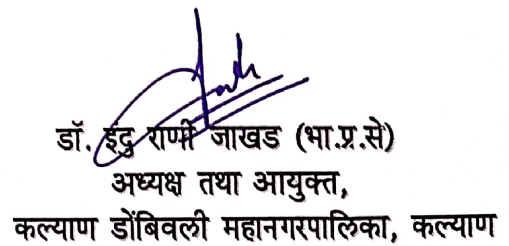 डॉ. इंदु राणी जाखड (भा.प्र.से)
अध्यक्ष तथा आयुक्त,
कल्याण डोंबिवली महानगरपालिका, कल्याण